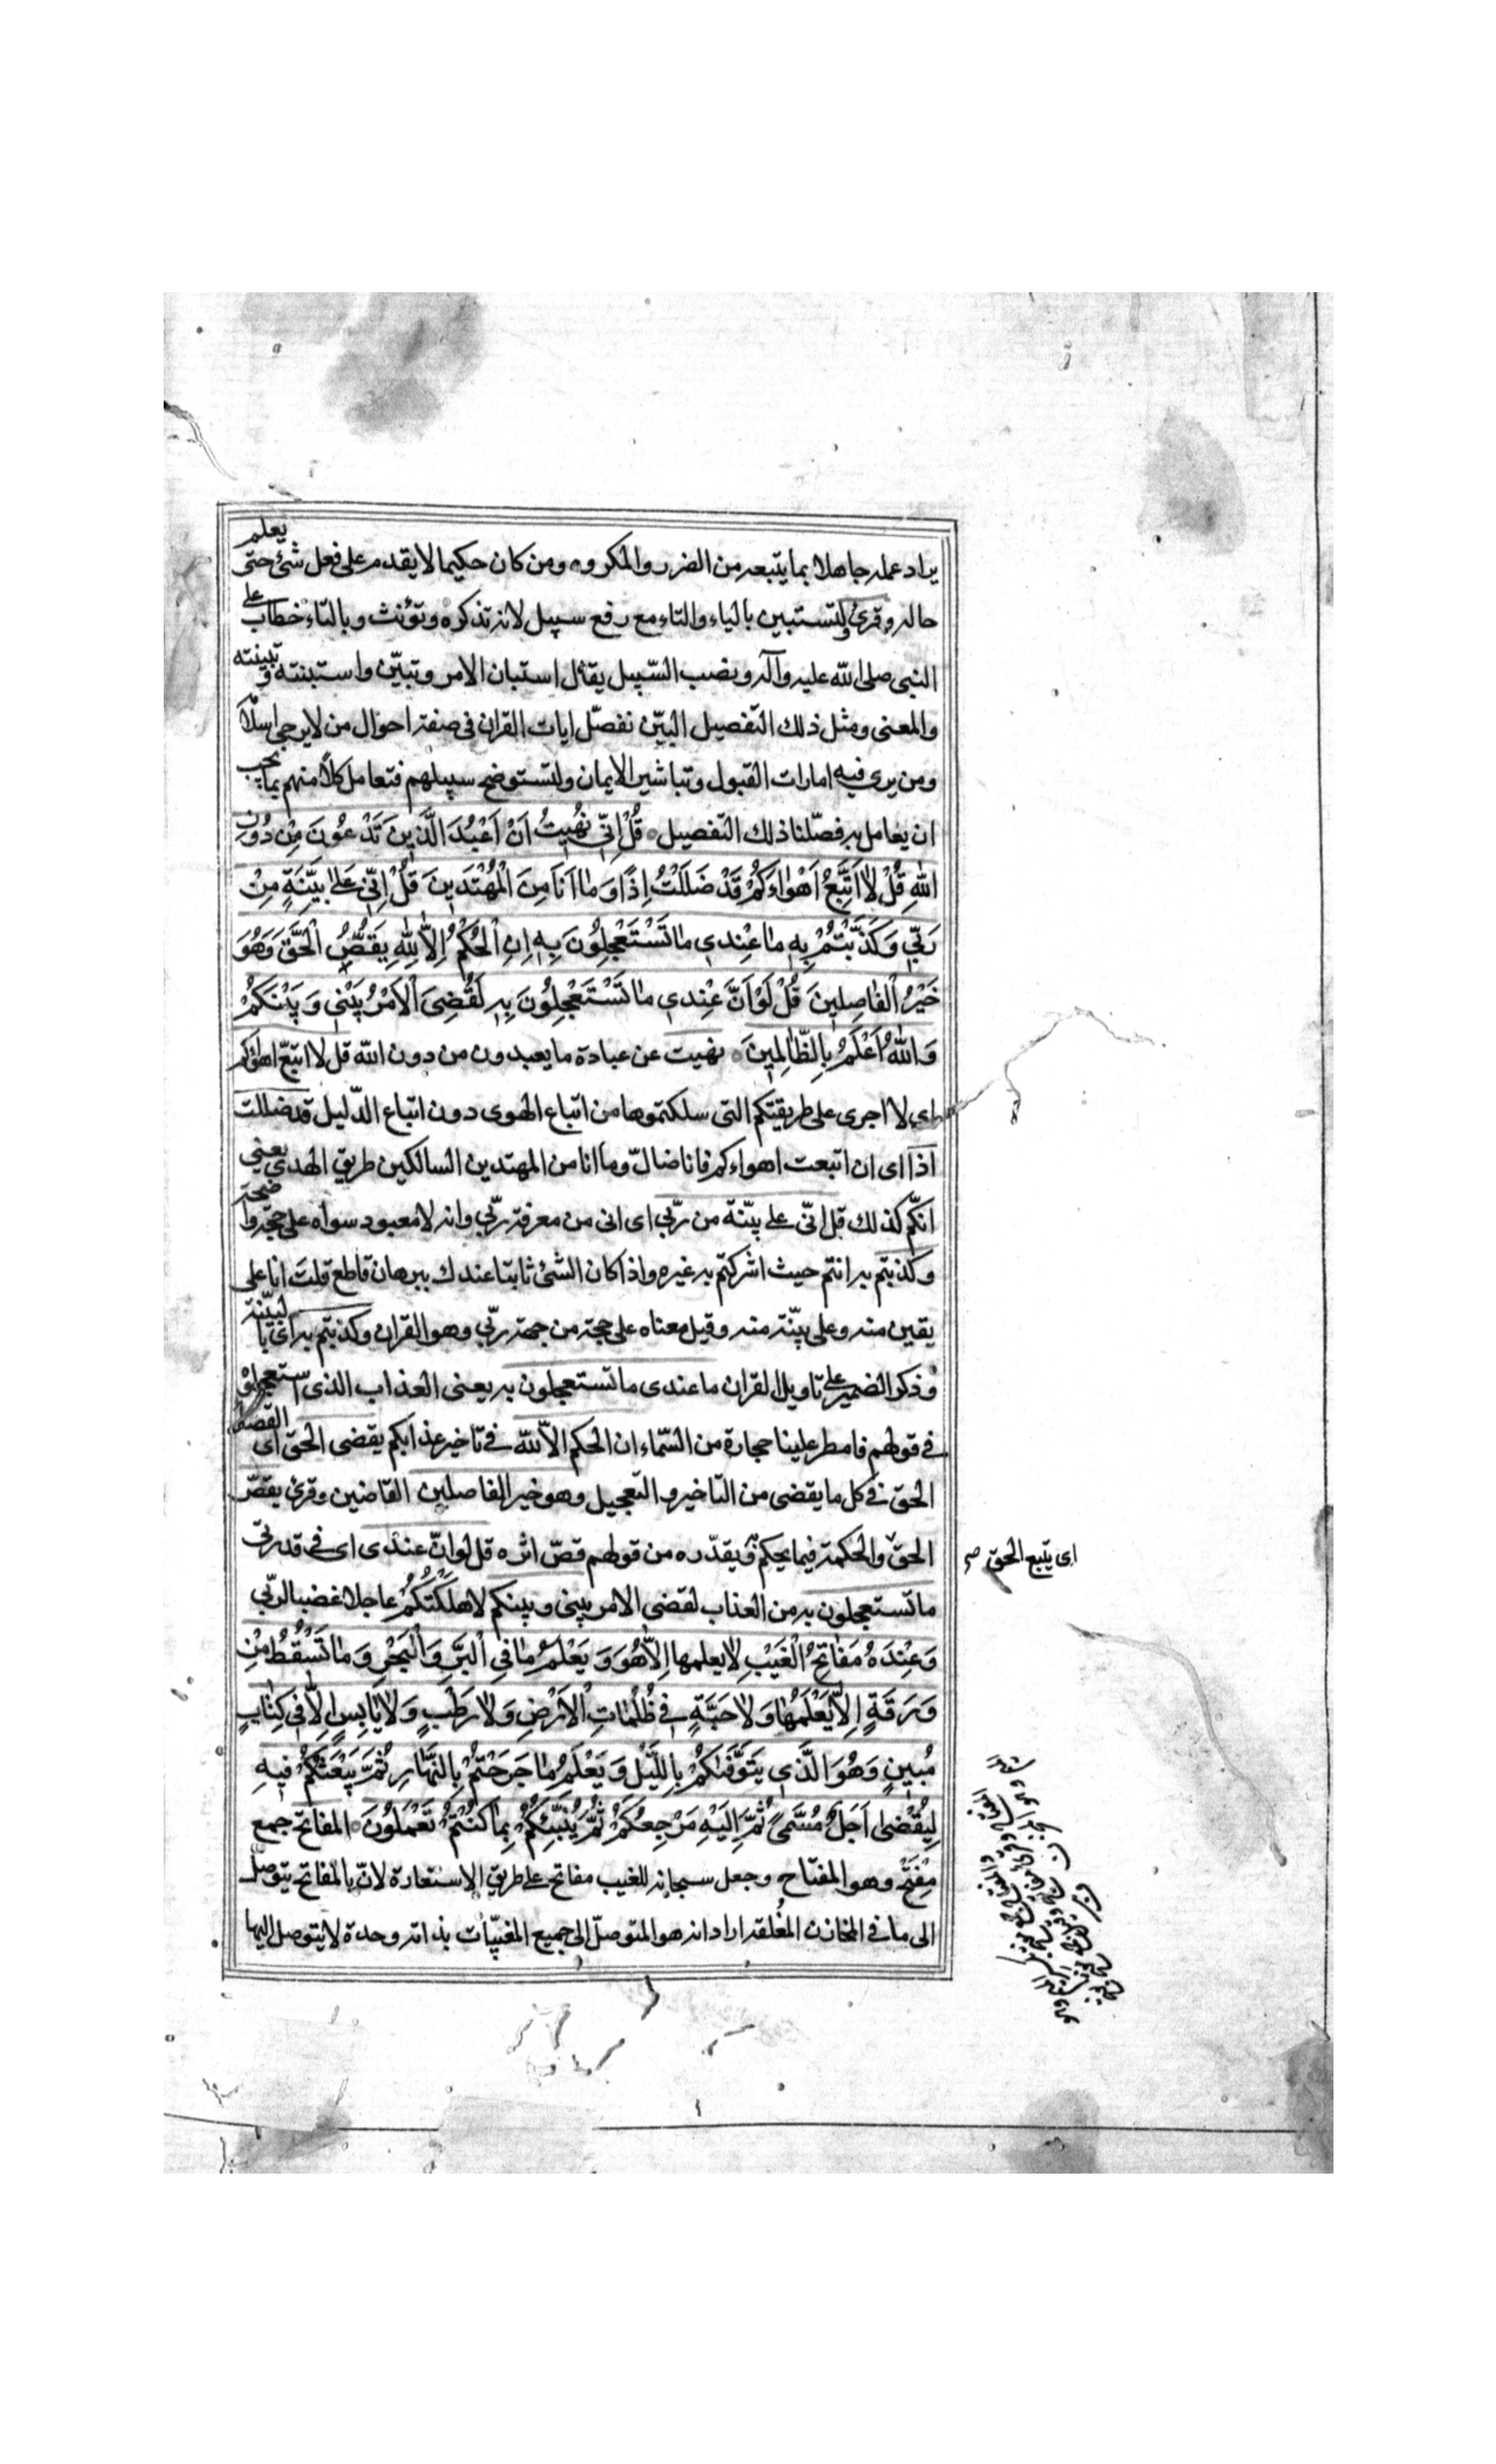 يراد عمله جاهلا بما يتبعه من الضرر والمكروه ومن كان حكيما لا يقدم على فعل شئ حتى يعلم
حاله وقرئ ولتستبين بالياء والتاء مع رفع سبيل لانه تذكره وتؤنث وبالتاء على خطاب
النبى صلى الله عليه وآله ونصب السّبيل يقال استبان الامر وتبيّن واستبنته وتبينته
والمعنى ومثل ذلك التّفصيل البيّن نفصّل ايات القران فى صفة احوال من لا يرجى اسلا
ومن يرى فيه امارات القبول وتباشير الايمان ولتستوضح سبيلهم فتعامل كلاّ منهم بما يجب
ان يعامل به فصّلنا ذلك التّفصيل قُلْ اِنّى نُهيتُ اَنْ اَعْبُدَ الَّذينَ تَدْعُونَ مِنْ دُونِ
اللّهِ قُلْ لا اَتَّبِعُ اَهْواءَكُمْ قَدْ ضَلَلْتُ اِذًا وَما اَنَا مِنَ الْمُهْتَدينَ قُلْ اِنّى عَلى بَيِّنَةٍ مِنْ
رَبّى وَكَذَّبْتُمْ بِهِ ما عِنْدى ما تَسْتَعْجِلُونَ بِهِ اِنِ الْحُكْمُ اِلاّ لِلّهِ يَقُصُّ الْحَقَّ وَهُوَ
خَيْرُ الْفاصِلينَ قُلْ لَوْ اَنَّ عِنْدى ما تَسْتَعْجِلُونَ بِهِ لَقُضِىَ الْاَمْرُ بَيْنى وَبَيْنَكُمْ
وَاللّهُ اَعْلَمُ بِالظّالِمينَ نهيت عن عبادة ما يعبدون من دون الله قل لا اتبع اهواءكم
اى لا اجرى على طريقتكم التى سلكتموها من اتباع الهوى دون اتباع الدّليل قد ضللت
اذا اى ان اتبعت اهواءكم فانا ضالّ وما انا من المهتدين السالكين طريق الهدى يعنى
انكّم كذلك قل انّى على بيّنة من ربّى اى انى من معرفة ربّى وانه لا معبود سواه على حجّة واضحة
وكذبتم به انتم حيث اشركتم به غيره واذا كان الشئ ثابتا عندك ببرهان قاطع قلت انا على
يقين منه وعلى بيّنة منه وقيل معناه على حجة من جهة ربّى وهو القران وكذبتم به اى بالبيّنة
وذكر الضمير على تاويل القران ما عندى ما تستعجلون به يعنى العذاب الذى استعجلوه
فى قولهم فامطر علينا حجارة من السّماء ان الحكم الاّ للّه فى تاخير عذابكم يقضى الحق اى القصه
الحق فى كل ما يقضى من التاخير والتّعجيل وهو خير الفاصلين القاضين وقرئ يقصّ
الحقّ والحكمة فيما يحكم ويقدّره من قولهم قصّ اثره قل لو انّ عندى اى فى قدرتى
اى يتبع الحق صح
ما تستعجلون به من العذاب لقضى الامر بينى وبينكم لاهلكتكم عاجلا غضبا لربّى
وَعِنْدَهُ مَفاتِحُ الْغَيْبِ لا يعلمها اِلاّ هُوَ وَيَعْلَمُ ما فِى الْبَرِّ وَالْبَحْرِ وَما تَسْقُطُ مِنْ
وَرَقَةٍ اِلاّ يَعْلَمُها وَلا حَبَّةٍ فى ظُلُماتِ الْاَرْضِ وَلا رَطْبٍ وَلا يابِسٍ اِلاّ فى كِتابٍ
مُبينٍ وَهُوَ الَّذى يَتَوَفّيكُمْ بِاللَّيْلِ وَيَعْلَمُ ما جَرَحْتُمْ بِالنَّهارِ ثُمَّ يَبْعَثُكُمْ فيهِ
لِيُقْضى اَجَلٌ مُسَمًّى ثُمَّ اِلَيْهِ مَرْجِعُكُمْ ثُمَّ يُنَبِّئُكُمْ بِما كُنْتُمْ تَعْمَلُونَ المفاتح جمع
مِفْتَح وهو المفتاح وجعل سبحانه للغيب مفاتح على طريق الاستعارة لانّ بالمفاتح يتوصل
الى ما فى المخازن المُغلقة اراد انه هو المتوصّل الى جميع المغيبّات بذاته وحده لا يتوصل اليها